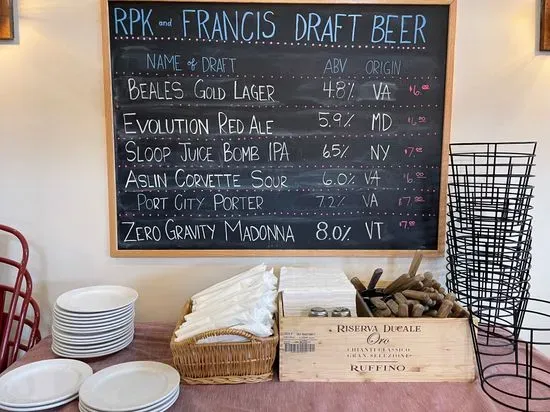 RPK and FRANCIS DRAFT BEER
NAME of DRAFT ABV ORIGIN
BEALES GOLD LAGER 4.8% VA $6.00
EVOLUTION RED ALE 5.9% MD $6.00
SLOOP JUICE BOMB IPA 6.5% NY $7.00
ASLIN CORVETTE SOUR 6.0% VA $6.00
PORT CITY PORTER 7.2% VA $7.00
ZERO GRAVITY MADONNA 8.0% VT $7.00
RISERVA DUCALE
Oro
CHIANTI CLASSICO
GRAN SELEZIONE
RUFFINO